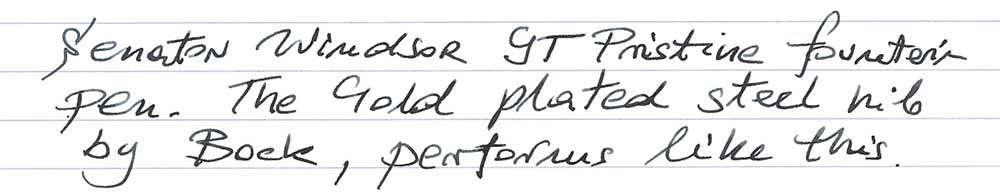 Senator Windsor GT Pristine fountain
pen. The Gold plated steel nib
by Bock, performs like this.